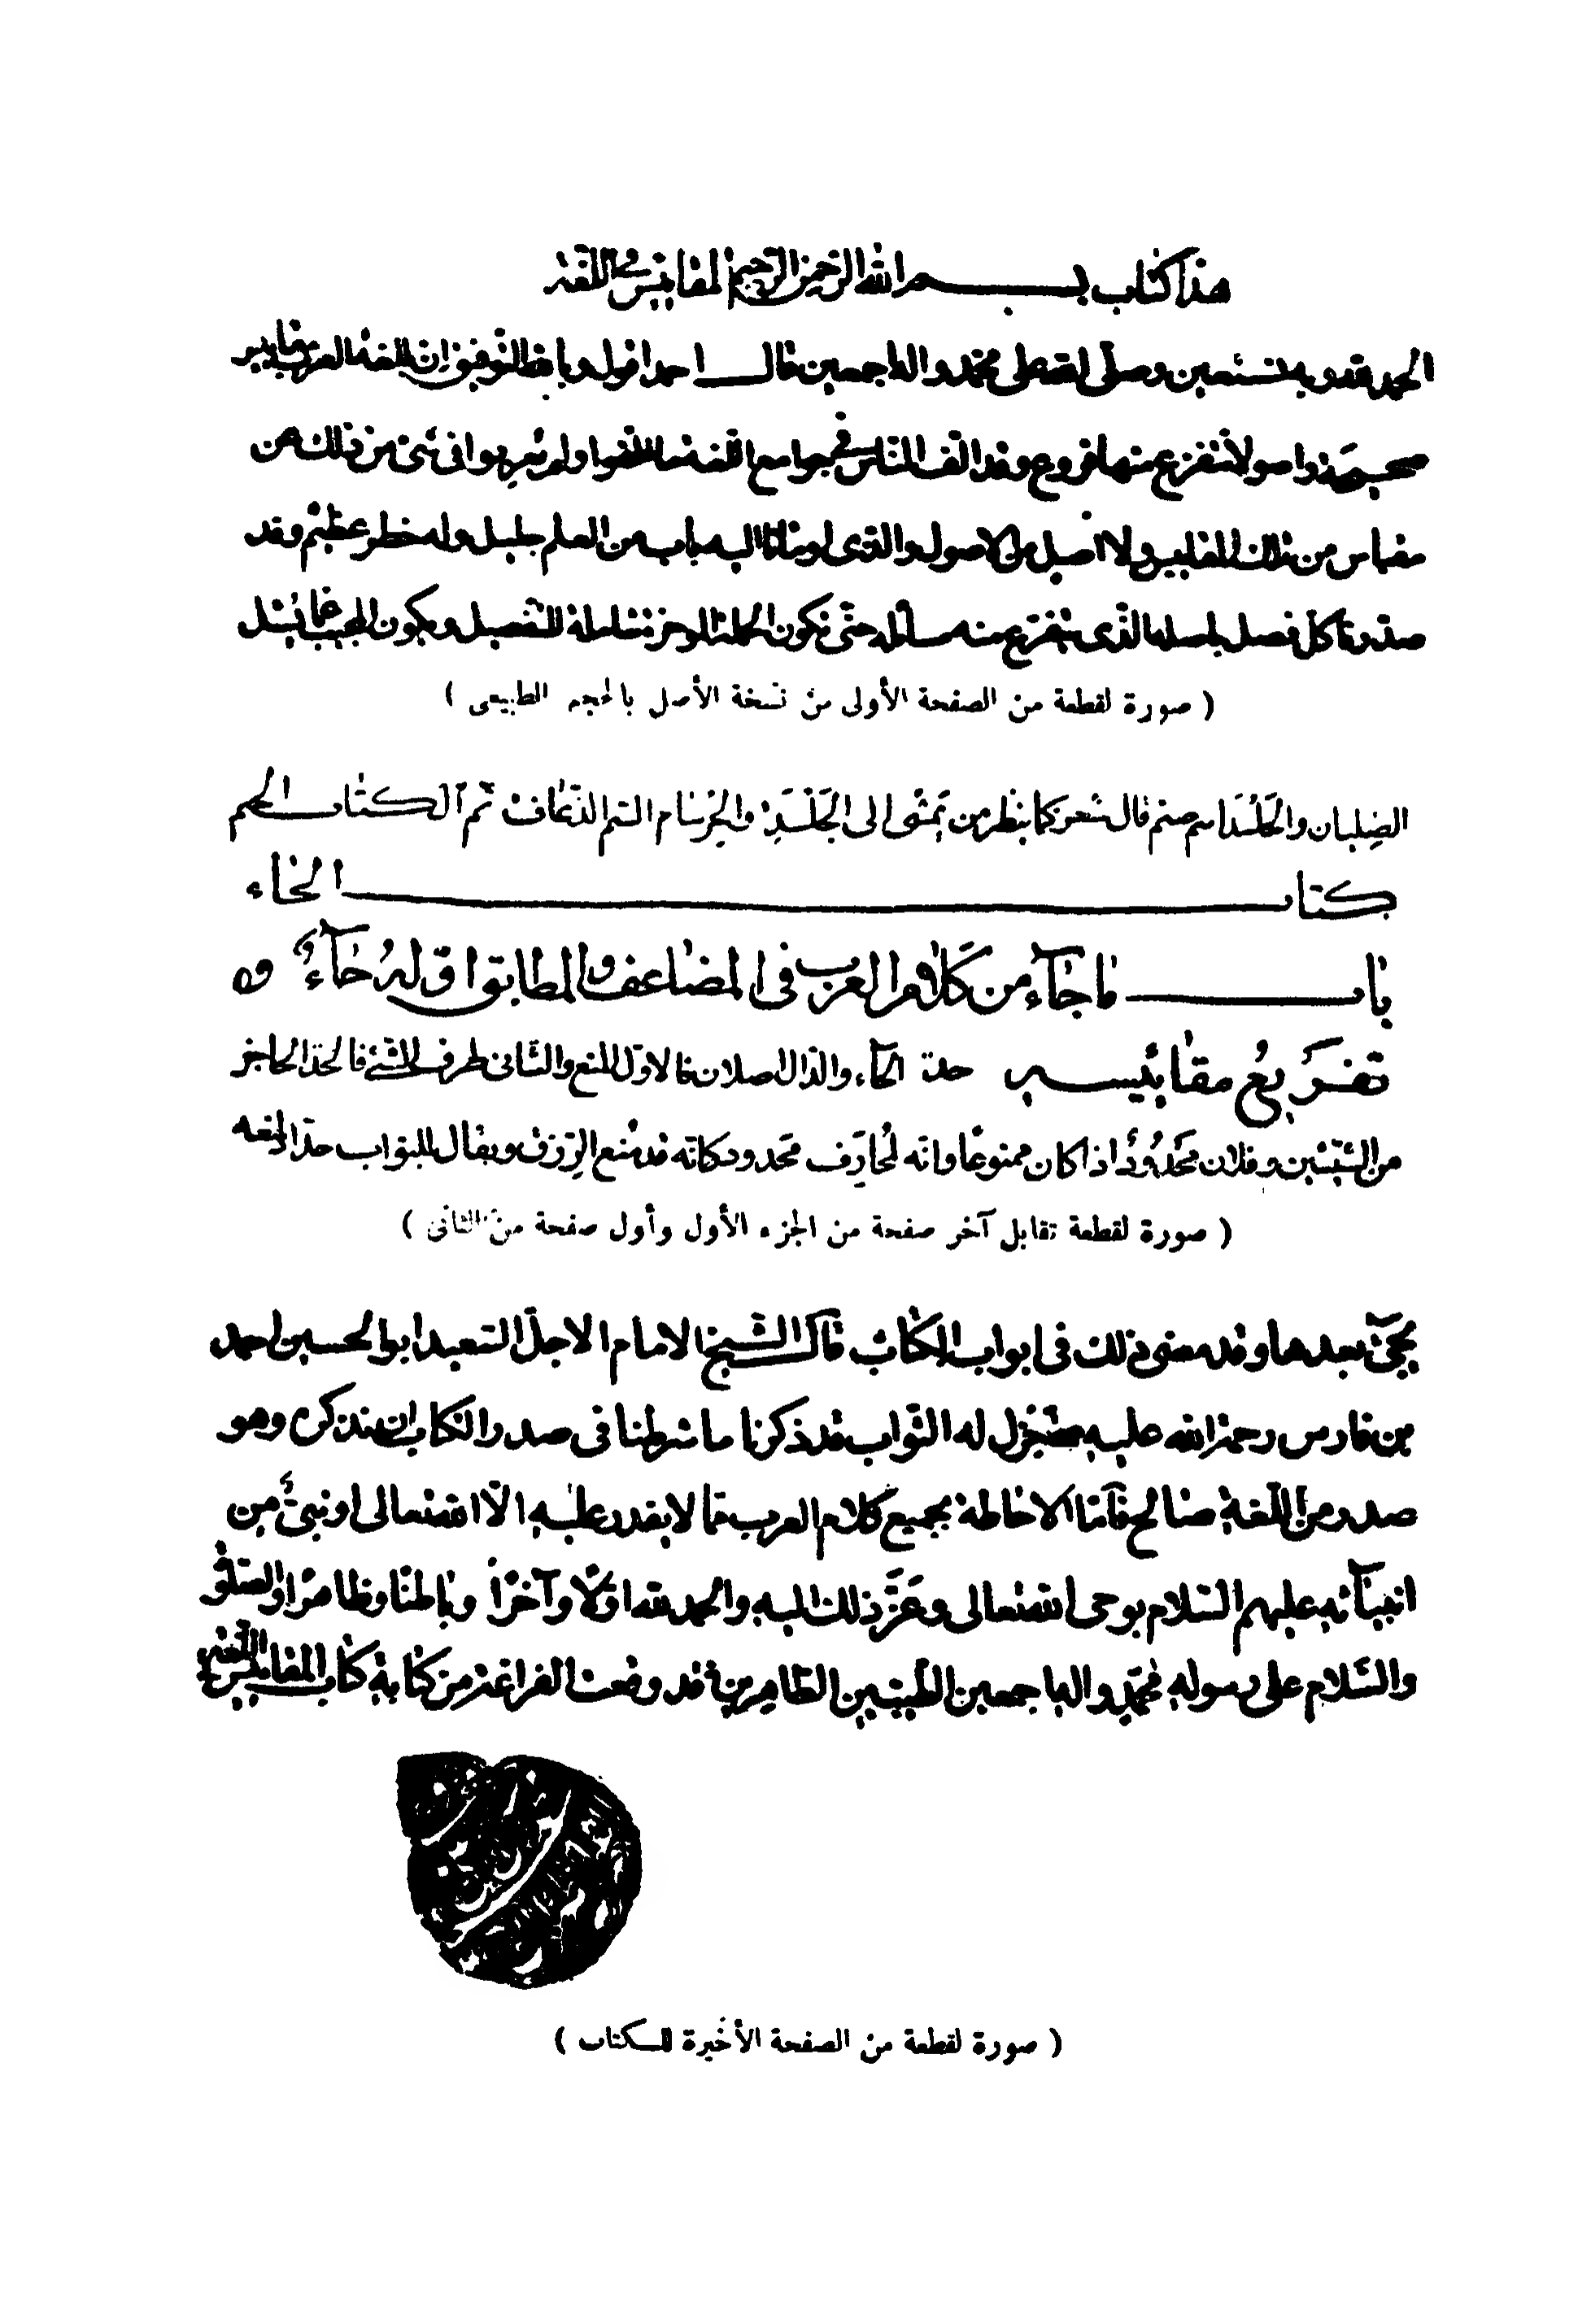 هذا كتاب بسم الله الرحمن الرحيم المقاييس في اللغة
الحمد لله وبه نستعين وصلى الله على محمد واله اجمعين قال احمد اقول وبالله التوفيق ان للغة العرب مقاييس
صحيحة واصولا تتفرع منها فروع وقد الّف الناس في جوامع اللغة ما الّفوا ولم يعربوا في شئ من ذلك عن
مقياس من تلك المقاييس ولا اصل من الاصول والذى اومانا اليه باب من العلم جليل وله خطر عظيم وقد
صدرنا كل فصل باصله الذى يتفرع منه مسائله حتّى تكون الجملة الموجزة شاملة للتفصيل ويكون المجيب عما يُسئل
( صورة لقطعة من الصفحة الأولى من نسخة الأصل بالحجم الطبيعى )
الصِلِبان والجَلْسَد اسم صنم قال شعر كما بيقر من يَمشى الى الجَلْسَدِ والجِرْسام السم الذعاف تم الكتاب الجيم
كتاب الحاء
باب ما جاء من كلام العرب فى المضاعف والمطابق اوّله حاء
تفريع مقاييسه حدّ الحاء والدال اصلان فالاوّل المنع والثانى طرف الشئ فالحدّ الحاجز
من الشيئين وفلان مَحْدُودٌ اذا كان ممنوعًا وانه لمُحارَف محدود كانّه قد مُنع الرِزق ويقال للبوّاب حدّاد لمنعه
( صورة لقطعة تقابل آخر صفحة من الجزء الأول وأول صفحة من الثانى )
يجئ بعدها وقد مضى ذلك فى ابواب الكتاب قال الشيخ الامام الاجلّ السعيد ابو الحسين احمد
بن فارس رحمة الله عليه واجزل له الثّواب قد ذكرنا ما شرطنا فى صدر الكتاب ان نذكره وهو
صدر من اللغة صالح فأمّا الاحاطة بجميع كلام العرب مما لا يقدر عليه الّا الله تعالى او نبىّ من
انبيائه عليهم السّلام بوحى الله تعالى وعَزّ ذلك اليه والحمد لله اوّلًا وآخرًا وباطنًا وظاهرًا والصلوة
والسّلام على رسوله محمّدٍ واله اجمعين الطّيبين الطّاهرين قد وقعت الفراغة من كتابة كتاب المقاييس اللغة
( صورة لقطعة من الصفحة الأخيرة للكتاب )